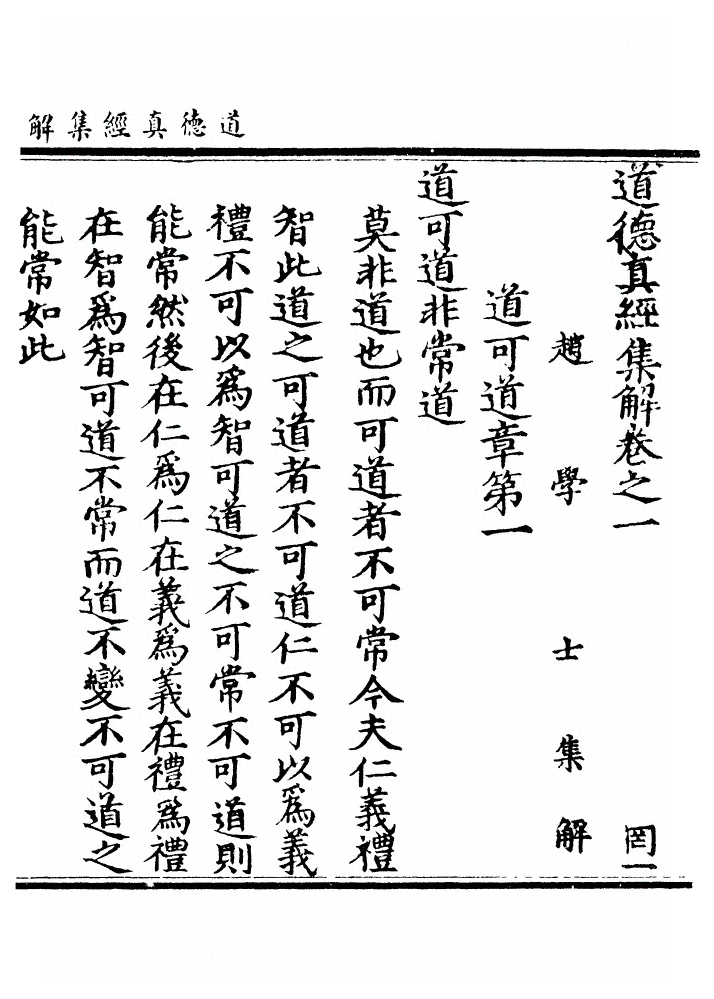 道德真經集解
道德真經集解卷之一　罔一
趙學士集解
道可道章第一
道可道非常道
莫非道也而可道者不可常今夫仁義禮
智此道之可道者不可道仁不可以爲義
禮不可以爲智可道之不可常不可道則
能常然後在仁爲仁在義爲義在禮爲禮
在智爲智可道不常而道不變不可道之
能常如此